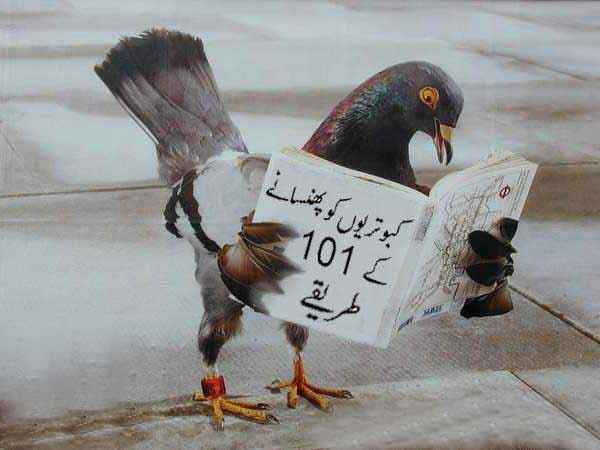 کبوتریوں کو پھنسانے
کے 101
طریقے